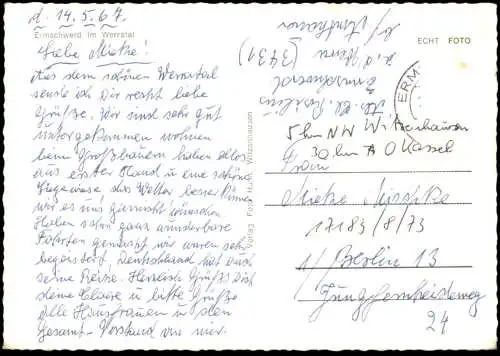 d. 14.5.67.
Ermschwerd im Werratal
Liebe Mieke!
Aus dem schönen Werratal
sende ich Dir recht liebe
Grüße. Wir sind sehr gut
untergekommen wohnen
beim Großbauern haben alles
aus erster Hand u eine schöne
Liegewiese das Wetter besser können
wir es uns wünschen.
Haben schon ganz wunderbare
Fahrten gemacht wir waren sehr
begeistert. Deutschland hat auch
seine Reize. Herzlichst Grüßt Dich
deine Claere u bitte Grüße
alle Hausfrauen in dem
Gesamt-Vorstand von mir.
Verlag Foto Witzenhausen
ECHT FOTO
ERM
(3431)
Ermschwerd
5 km NW Witzenhausen
30 km O Kassel
Frau
Mieke
17183/8/73
1/Berlin 13
Jungfernheideweg
24